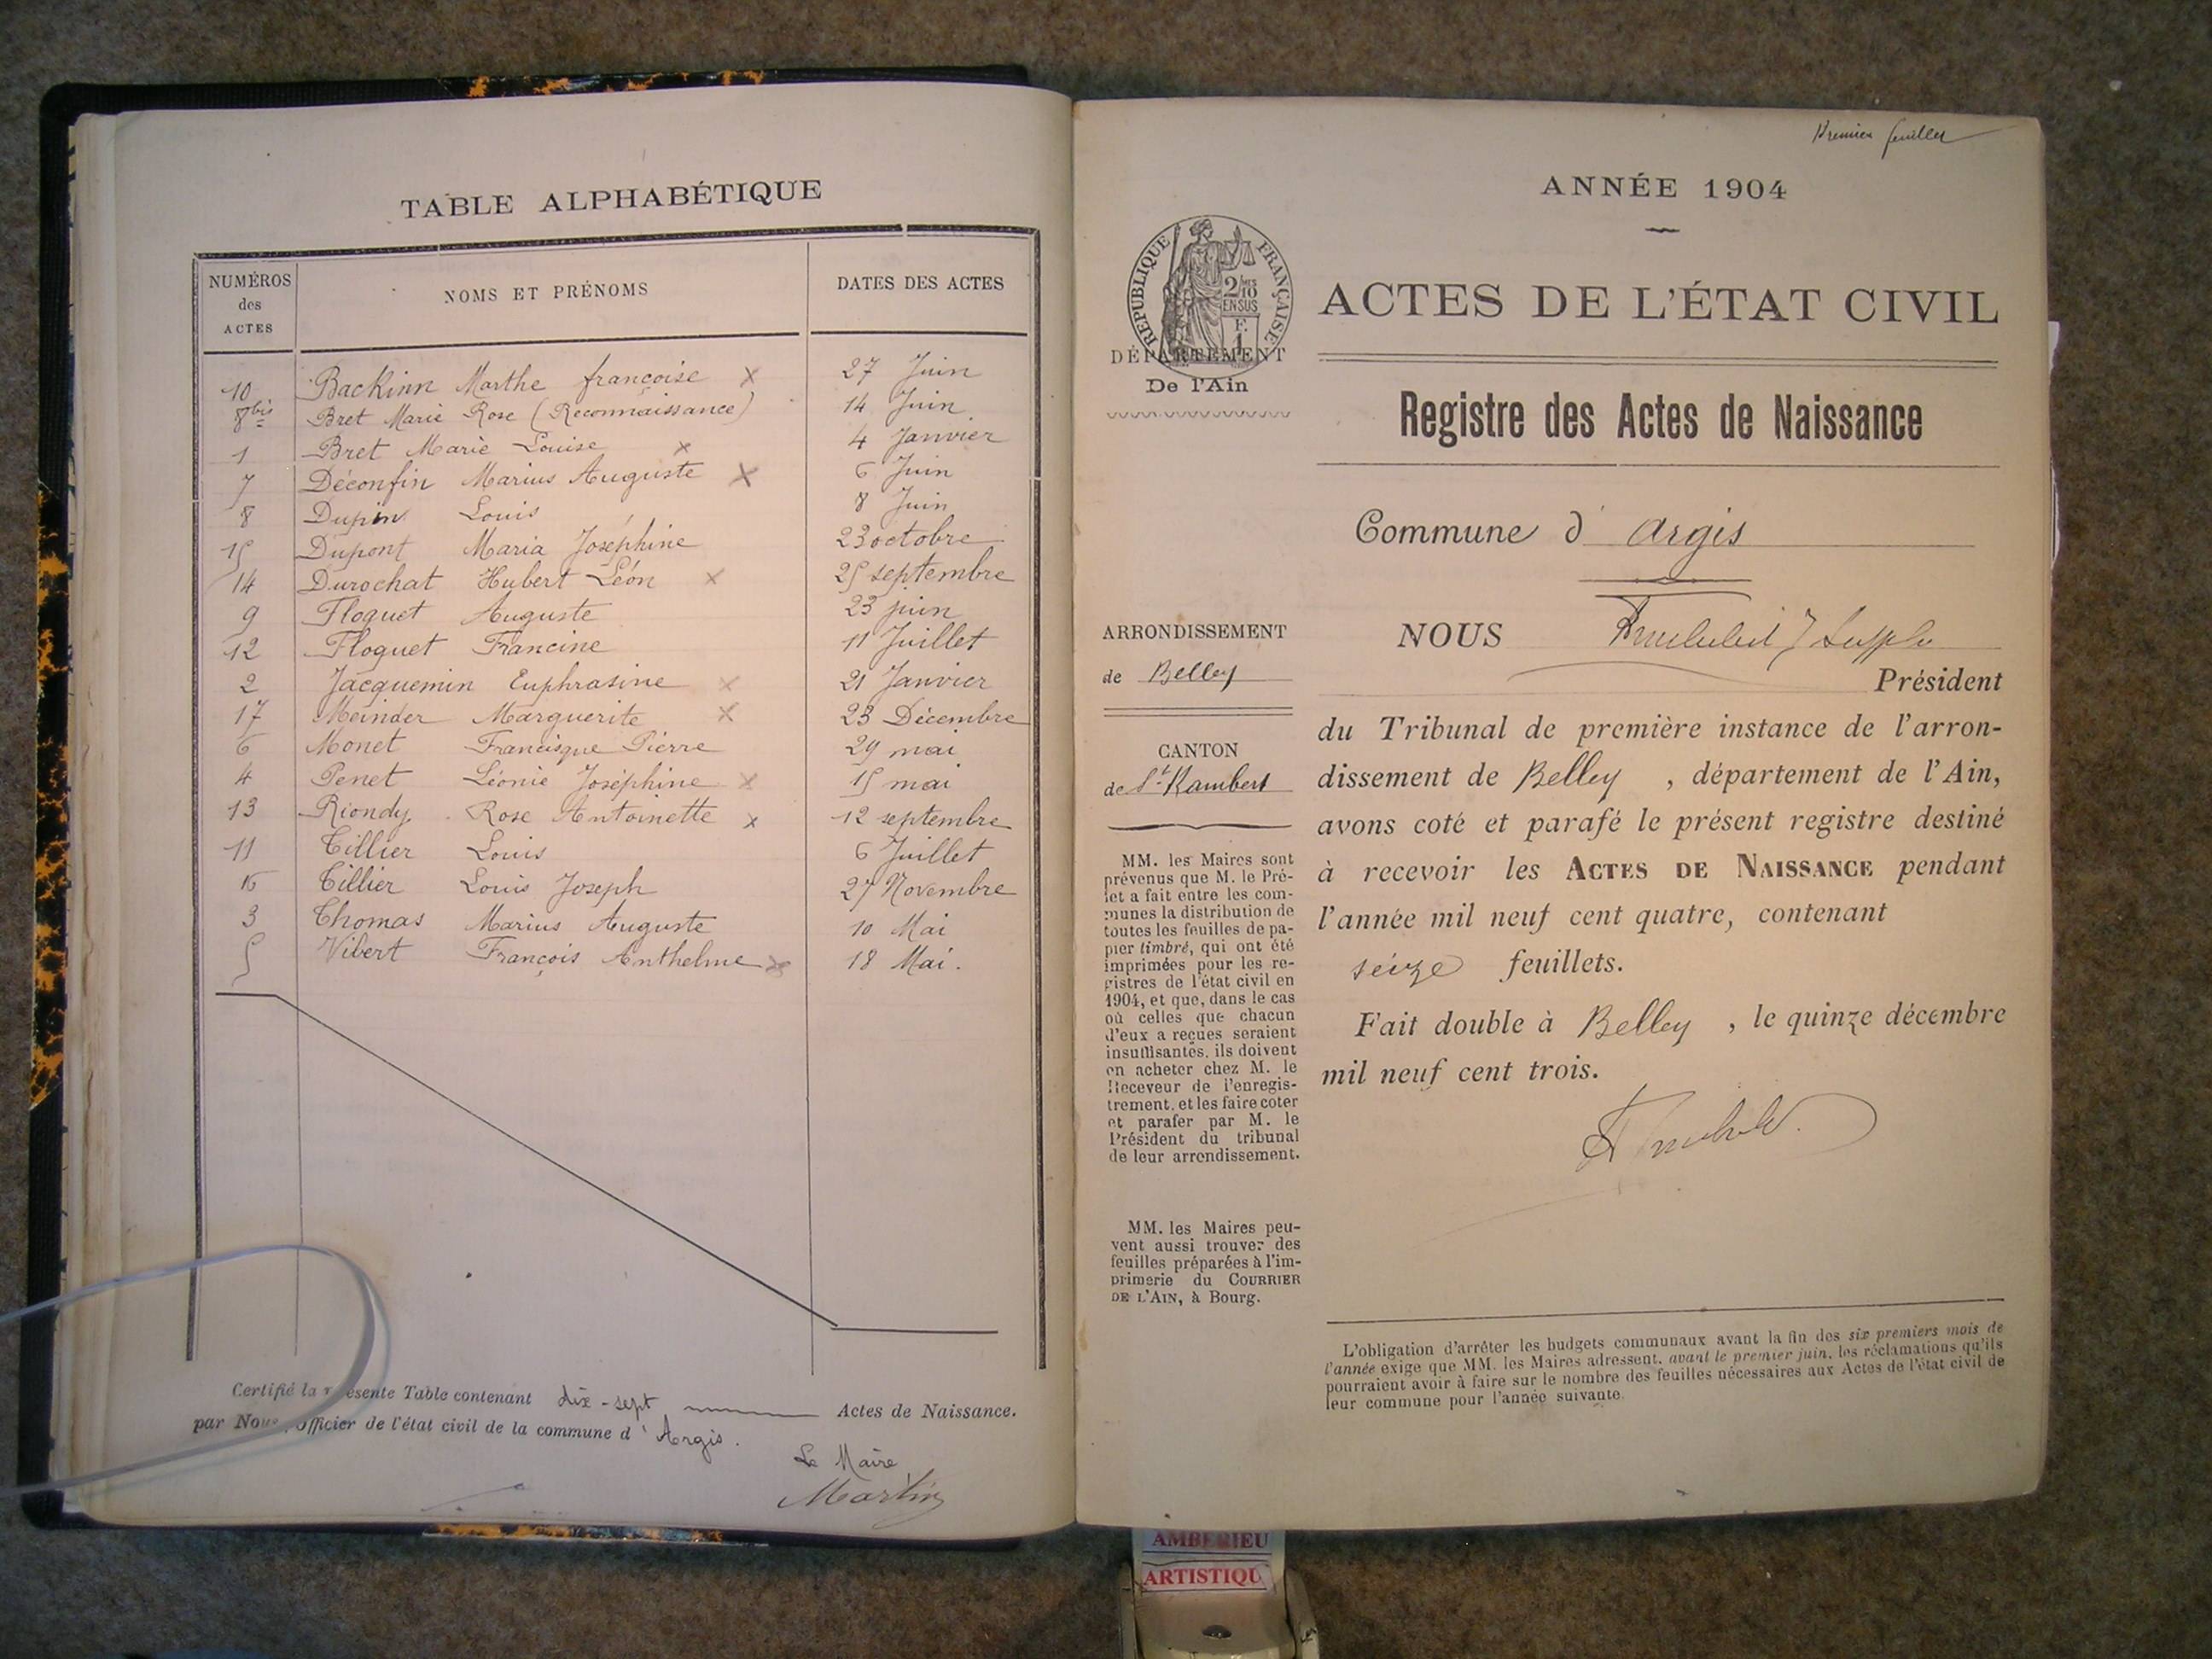 TABLE ALPHABÉTIQUE
NUMÉROS des ACTES NOMS ET PRÉNOMS DATES DES ACTES
10 Backinn Marthe françoise x 27 Juin
8bis Bret Marie Rose (Reconnaissance) 14 Juin
1 Bret Marie Louise x 4 Janvier
7 Déconfin Marius Auguste x 6 Juin
8 Dupin Louis 8 Juin
15 Dupont Maria Joséphine 23 octobre
14 Durochat Hubert Léon x 25 septembre
9 Floquet Auguste 23 juin
12 Floquet Francine 11 Juillet
2 Jacquemin Euphrasine x 21 Janvier
17 Meinder Marguerite x 23 Décembre
6 Monet Francisque Pierre 29 mai
4 Penet Léonie Joséphine x 15 mai
13 Riondy Rose Antoinette x 12 septembre
11 Tillier Louis 6 Juillet
16 Tillier Louis Joseph 27 Novembre
3 Thomas Marius Auguste 10 Mai
5 Vibert François Anthelme x 18 Mai.
Certifié la présente Table contenant dix-sept Actes de Naissance.
par Nous, Officier de l'état civil de la commune d'Argis.
Le Maire
Martin
Premier feuillet
ANNÉE 1904
RÉPUBLIQUE FRANÇAISE
2/10
EN SUS
F.
1
ACTES DE L'ÉTAT CIVIL
DÉPARTEMENT
De l'Ain
Registre des Actes de Naissance
Commune d'Argis
ARRONDISSEMENT
de Belley
CANTON
de St Rambert
MM. les Maires sont
prévenus que M. le Pré-
fet a fait entre les com-
munes la distribution de
toutes les feuilles de pa-
pier timbré, qui ont été
imprimées pour les re-
gistres de l'état civil en
1904, et que, dans le cas
où celles que chacun
d'eux a reçues seraient
insuffisantes, ils doivent
en acheter chez M. le
Receveur de l'enregis-
trement, et les faire coter
et parafer par M. le
Président du tribunal
de leur arrondissement.
MM. les Maires peu-
vent aussi trouver des
feuilles préparées à l'im-
primerie du COURRIER
DE L'AIN, à Bourg.
NOUS
Président
du Tribunal de première instance de l'arron-
dissement de Belley, département de l'Ain,
avons coté et parafé le présent registre destiné
à recevoir les ACTES DE NAISSANCE pendant
l'année mil neuf cent quatre, contenant
seize feuillets.
Fait double à Belley, le quinze décembre
mil neuf cent trois.
L'obligation d'arrêter les budgets communaux avant la fin des six premiers mois de
l'année exige que MM. les Maires adressent, avant le premier juin, les réclamations qu'ils
pourraient avoir à faire sur le nombre des feuilles nécessaires aux Actes de l'état civil de
leur commune pour l'année suivante.
AMBERIEU
ARTISTIQU